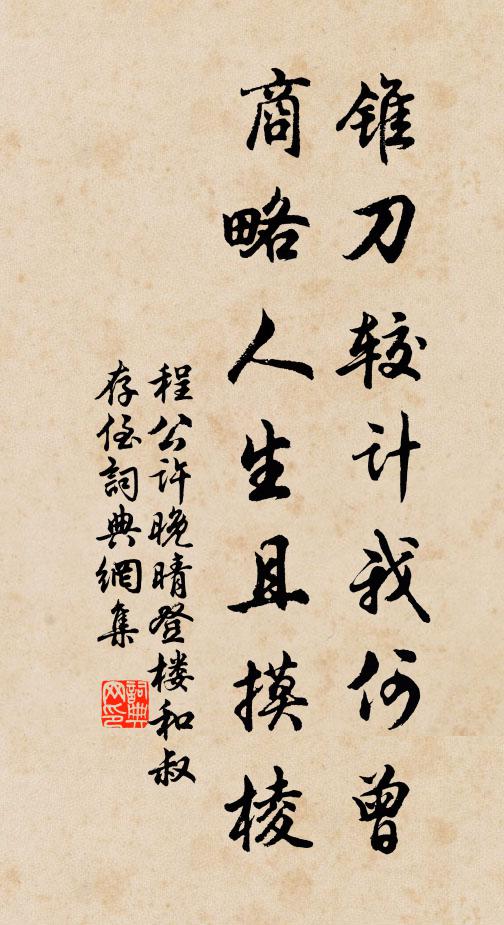 锥刀较计我何曾
商略人生且摸棱
程公许晚晴登楼和叔
存侄詞典網集
詞典
网印